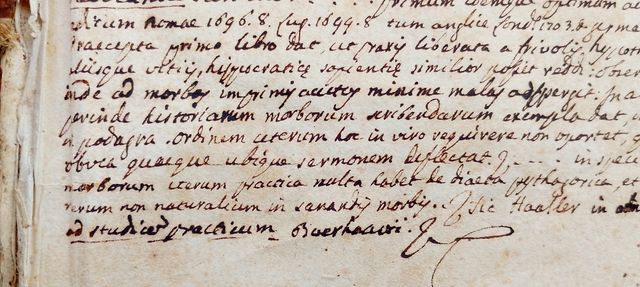 primum idemque optimum
Romae 1696. 8. Lug. 1699. 8 tum anglice Lond. 1703.
Praecepta primo libro dat, ut praxis liberata a frivolis, hypot
aliisque vitiis, hippocraticae sapientiae similior possit reddi: obser
inde ad morbos imprimis acutos minime malas aspergit. Ina
perinde historiarum morborum scribendarum exempla dat,
podagra. Ordinem uterum hoc in viro requirere non oportet,
obvia quaeque ubique sermonem deflectat .... in speci
morborum uterum practica multa habet de diaeta pythagorica, et
rerum non naturalium in sanandis morbis. Sic Haaller in
ad studium practicum Boerhaavii.